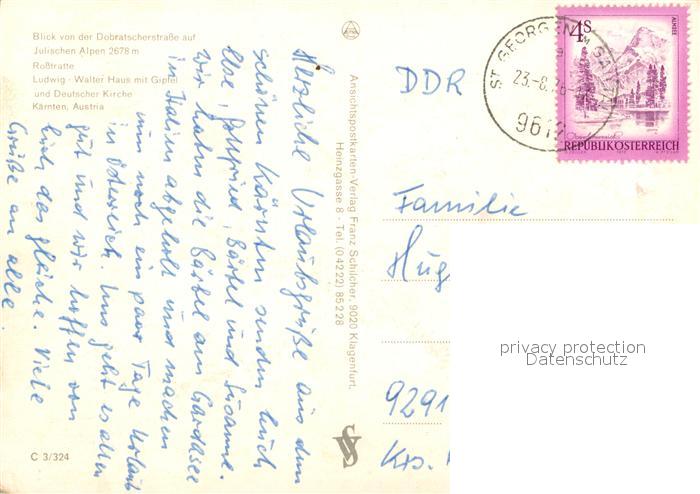 Blick von der Dobratscherstraße auf
Julischen Alpen 2678 m
Roßtratte
Ludwig - Walter Haus mit Gipfel
und Deutscher Kirche
Kärnten, Austria
Herzliche Urlaubsgrüße aus dem
schönen Kärnten senden Euch
Ilse, Gottfried, Bärbel und Susanne.
Wir haben die Bärbel am Gardasee
in Italien abgeholt und machen
nun noch ein paar Tage Urlaub
in Österreich. Uns geht es allen
gut und wir hoffen von
Euch das gleiche. Viele
Grüße an alle.
C 3/324
Ansichtspostkarten-Verlag Franz Schilcher, 9020 Klagenfurt,
Heinzgasse 8 - Tel. (04222) 85 2 28
ST. GEORGEN IM GAILTAL
23.-8.76
9612
4 S
ALMSEE
REPUBLIK ÖSTERREICH
DDR
Familie
Hug
9291
Krs.
privacy protection
Datenschutz